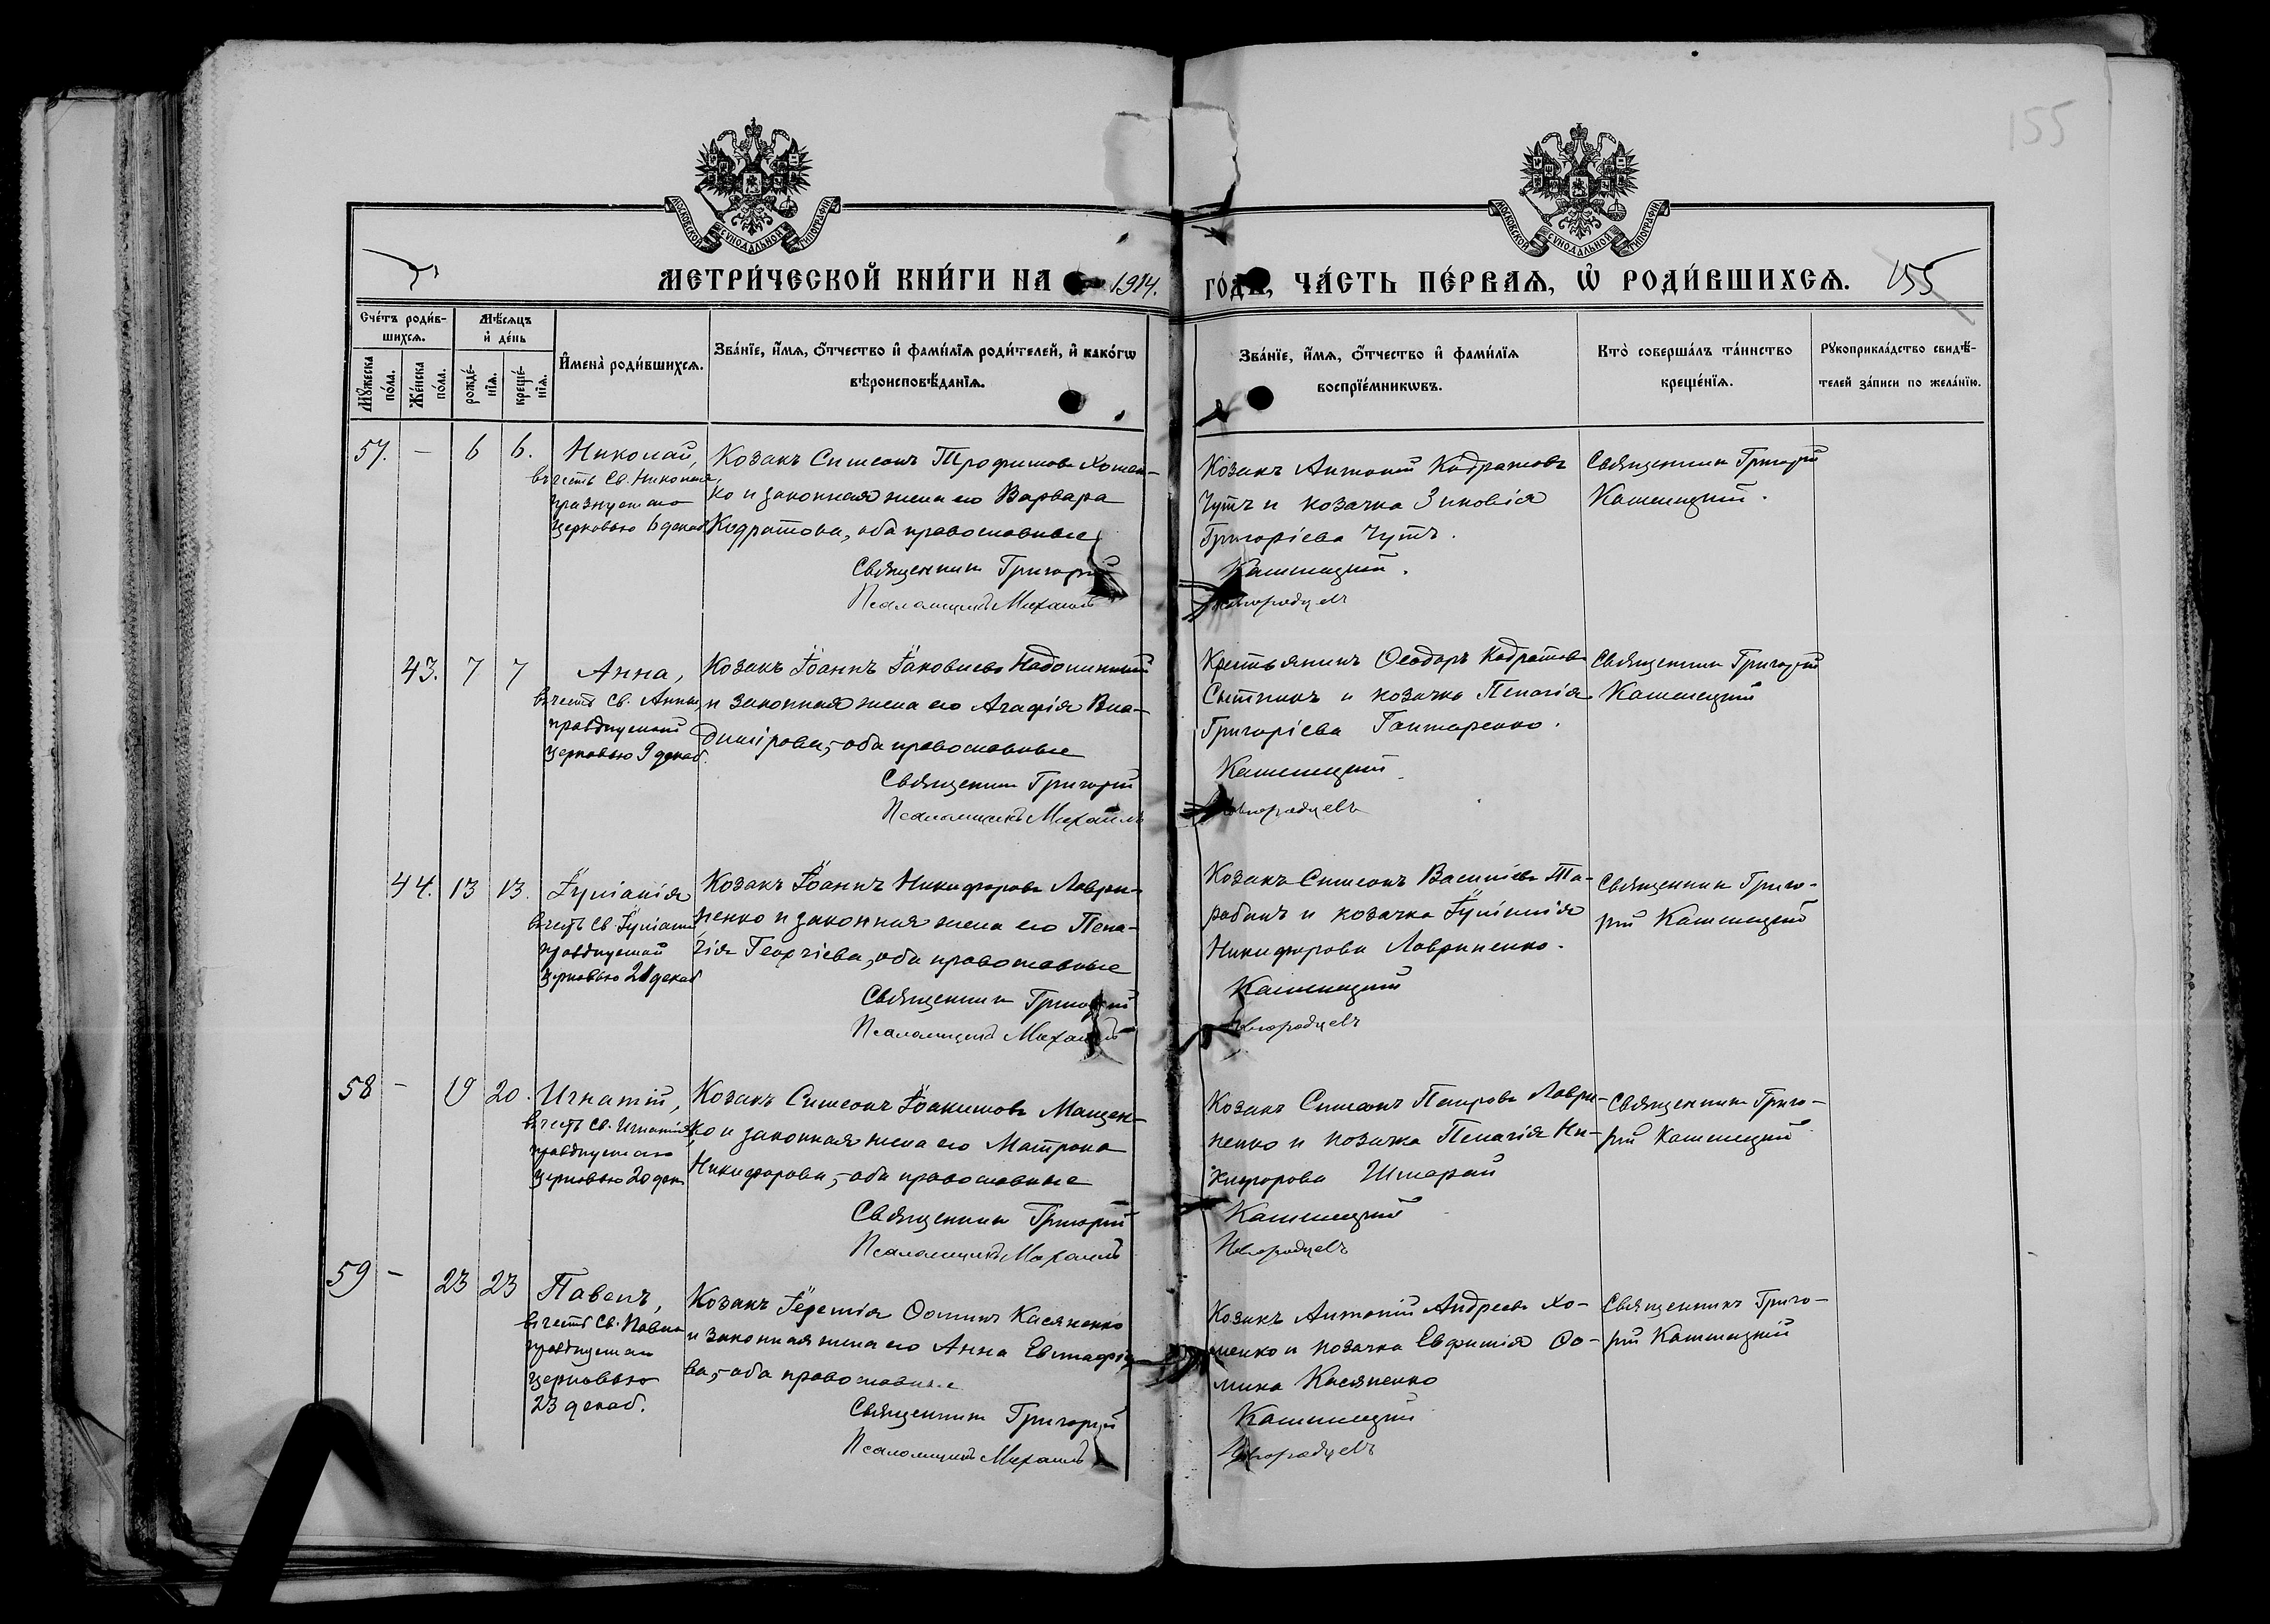 155
МОСКОВСКОЙ СѴНОДАЛЬНОЙ ТИПОГРАФІИ
МОСКОВСКОЙ СѴНОДАЛЬНОЙ ТИПОГРАФІИ
МЕТРИ́ЧЕСКОЙ КНИ́ГИ НА 1914. ГО́ДЪ, ЧА́СТЬ ПЕ́РВАЯ, Ѡ҆ РОДИ́ВШИХСЯ. 155
Сче́тъ роди́в-
шихся.
Мѣ́сяцъ
и҆ де́нь
Мꙋ́жеска
по́ла.
Же́нска
по́ла.
рожде́-
нїя.
креще́-
нїя.
И҆мена̀ роди́вшихся.
Зва́нїе, и҆́мя, ѻ҆́тчество и҆ фами́лїя роди́телей, и҆ како́гѡ
вѣроисповѣ́данїя.
Зва́нїе, и҆́мя, ѻ҆́тчество и҆ фами́лїя
воспрїе́мникѡвъ.
Кто̀ соверша́лъ та́инство
креще́нїя.
Рꙋкоприкла́дство свидѣ́-
телей за́писи по жела́нїю.
57. — 6 6. Николай,
въ честь Св. Николая,
празнуемаго
церковью 6 декаб
Козакъ Симеонъ Трофимовъ Хомен-
ко и законная жена его Варвара
Кодратова, оба православные
Священникъ Григорій
Псаломщикъ Михаилъ
Козакъ Антоній Кодратовъ
Чутъ и козачка Зиновія
Григоріева Чутъ.
Кашицкій.
Новгородцевъ
Священникъ Григорій
Кашицкій.
43. 7 7 Анна,
въ честь Св. Анны
празднуемой
церковью 9 декаб.
Козакъ Іоаннъ Іаковлевъ
и законная жена его Агафія Вла-
димірова, - оба православные
Священникъ Григорій
Псаломщикъ Михаилъ
Крестьянинъ Ѳеодоръ Кодратовъ
Сытникъ и козачка Пелагія
Григоріева Гонтаренко.
Кашицкій
Новгородцевъ
Священникъ Григорій
Кашицкій
44. 13 13. Іуліанія
въ честь Св. Іуліаніи
празднуемой
церковью 21 декаб
Козакъ Іоаннъ Никифоровъ Лаври-
ненко и законная жена его Пела-
гія Георгіева, оба православные
Священникъ Григорій
Псаломщикъ Михаилъ
Козакъ Симеонъ Василіевъ Та-
рабанъ и козачка Іуліанія
Никифорова Лавриненко.
Кашицкій
Новгородцевъ
Священникъ Григо-
рій Кашицкій
58 — 19 20. Игнатій,
въ честь Св. Игнатія
празднуемаго
церковью 20 дек
Козакъ Симеонъ Іоакимовъ Мащен-
ко и законная жена его Матрона
Никифорова, - оба православные
Священникъ Григорій
Псаломщикъ Михаилъ
Козакъ Симеонъ Петровъ Лаври-
ненко и козачка Пелагія Ни-
кифорова
Кашицкій
Новгородцевъ
Священникъ Григо-
рій Кашицкій
59 — 23 23 Павелъ,
въ честь Св. Павла
празднуемаго
церковью
23 декаб.
Козакъ Іеремія Ѳоминъ Касяненко
и законная жена его Анна Евстафіе
ва, - оба православные
Священникъ Григорій
Псаломщикъ Михаилъ
Козакъ Антоній Андреевъ Хо-
менко и козачка Евфимія Ѳо-
мина Касяненко
Кашицкій
Новгородцевъ
Священникъ Григо-
рій Кашицкій